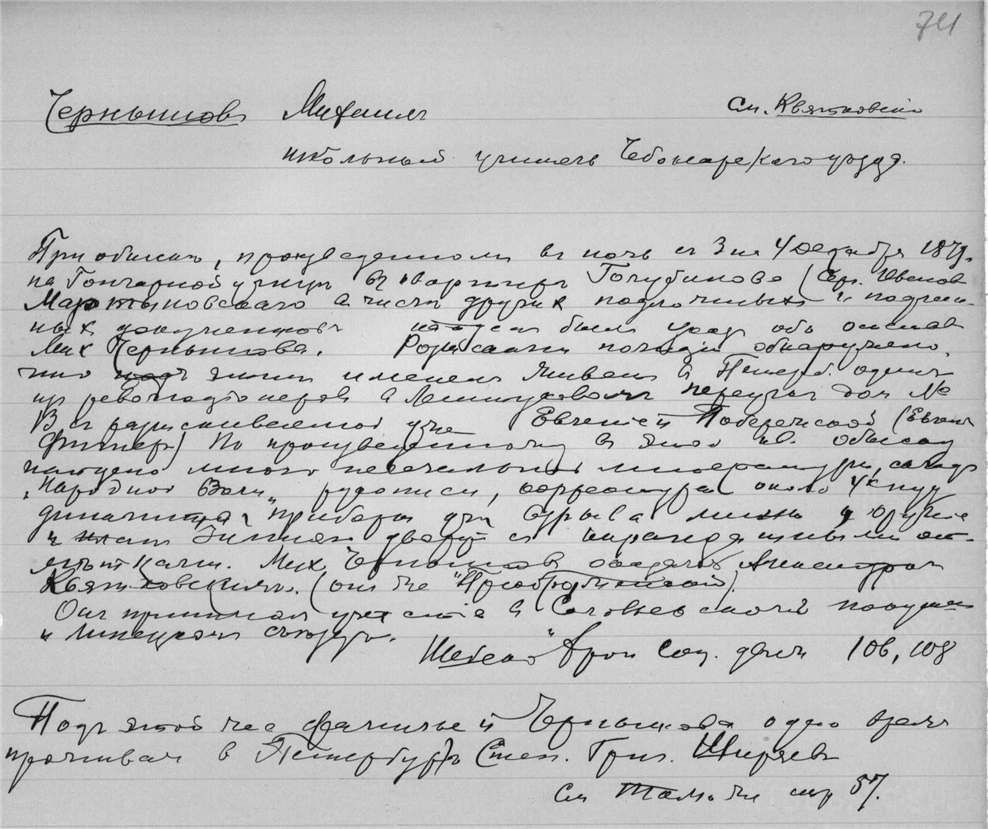 741
Чернышовъ Михаилъ см. Квятковскiй
школьный учитель Чебоксарскаго уѣзда.
При обыскѣ, произведенномъ въ ночь съ 3 на 4 декабря 1879.
на Гончарной улицѣ въ квартирѣ Голубинова (Сер. Иванов
Мартыновскаго въ числѣ другихъ подложныхъ и подлин-
ныхъ документовъ былъ указъ объ отставкѣ
Мих Чернышова. Розысками полиціи обнаружено,
что подъ этимъ именемъ живетъ въ Петерб. одинъ
изъ революціонеровъ въ Лештуковомъ переулкѣ домъ №
13 съ Евгеніей Побережской (Евгенія
Фигнеръ) По произведенному въ этой кв. обыску
найдено много нелегальной литературы, складъ
„Народной Воли", рукописи, корректура, около ¼ пуд
динамита, приборы для взрыва мины, оружіе
и планъ Зимняго дворца съ карандашными от-
мѣтками. Мих. Чернышовъ оказался Александромъ
Квятковскимъ. (онъ же "Преображенскій).
Онъ принималъ участіе въ Соловьевскомъ покушеніи
и Липецкомъ съѣздѣ.
"Хрон соц. движ 106, 108
Подъ этой же фамиліей Чернышова одно время
проживалъ въ Петербургѣ Степ. Григ. Ширяевъ
см Тамъ-же стр 57.